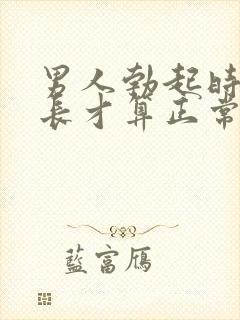 男人勃起時
長才算正常
藍富鴈